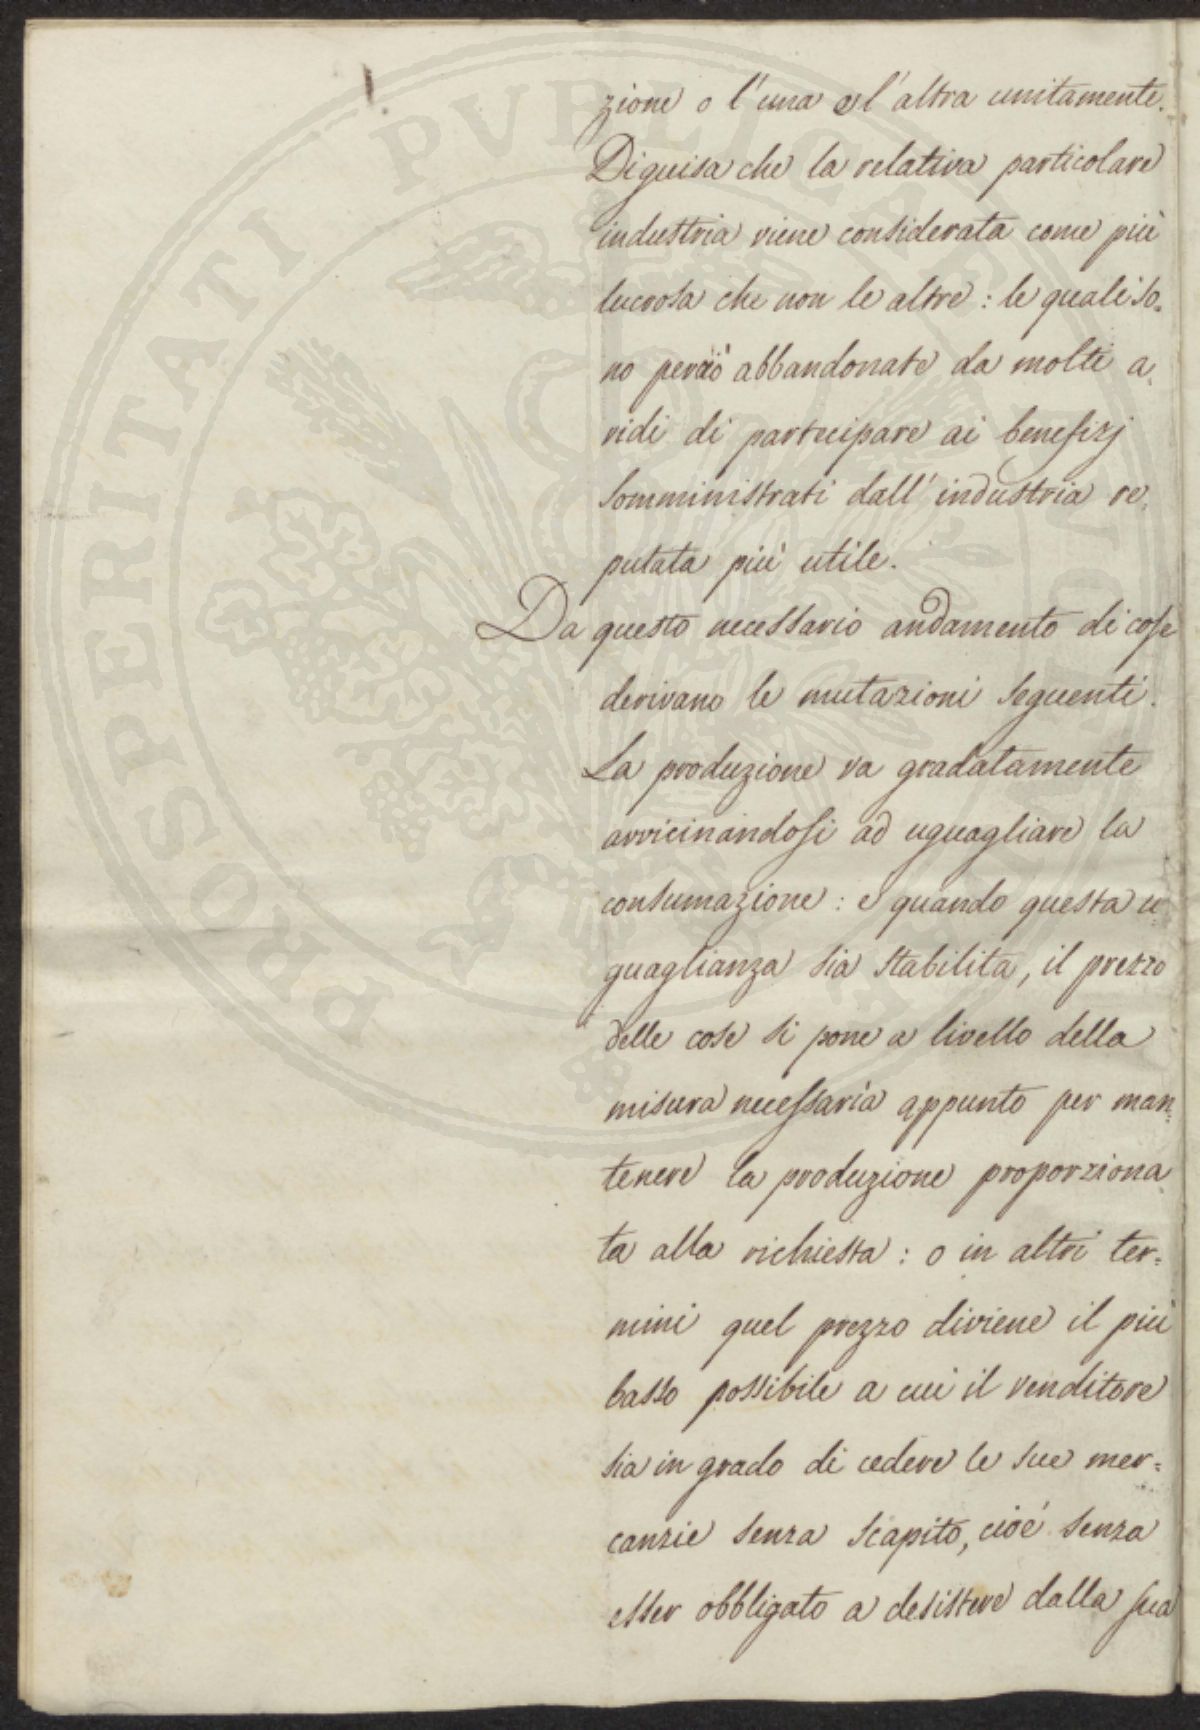 zione o l'una e l'altra unitamente.
Di guisa che la relativa particolare
industria viene considerata come più
lucrosa che non le altre : le quali so=
no perciò abbandonate da molti a=
vidi di partecipare ai benefizj
somministrati dall'industria re=
putata più utile.
Da questo necessario andamento di cose
derivano le mutazioni seguenti.
La produzione va gradatamente
avvicinandosi ad uguagliare la
consumazione : e quando questa u=
guaglianza sia stabilita, il prezzo
delle cose si pone a livello della
misura necessaria appunto per man=
tenere la produzione proporziona=
ta alla richiesta : o in altri ter=
mini quel prezzo diviene il più
basso possibile a cui il venditore
sia in grado di cedere le sue mer=
canzie senza scapito, cioè senza
esser obbligato a desistere dalla sua
PROSPERITATI PVBLICAE